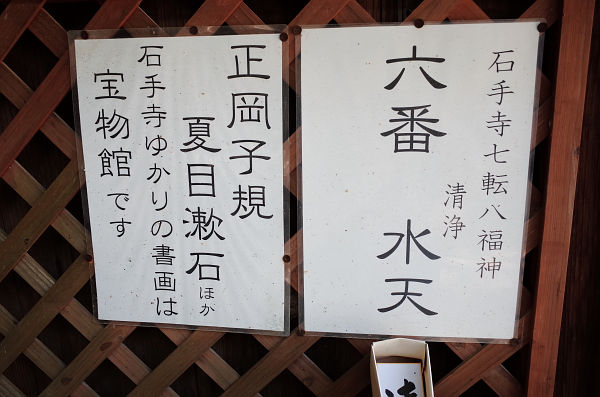 石手寺七転八福神
清浄
六番 水天
正岡子規
夏目漱石ほか
石手寺ゆかりの書画は
宝物館です